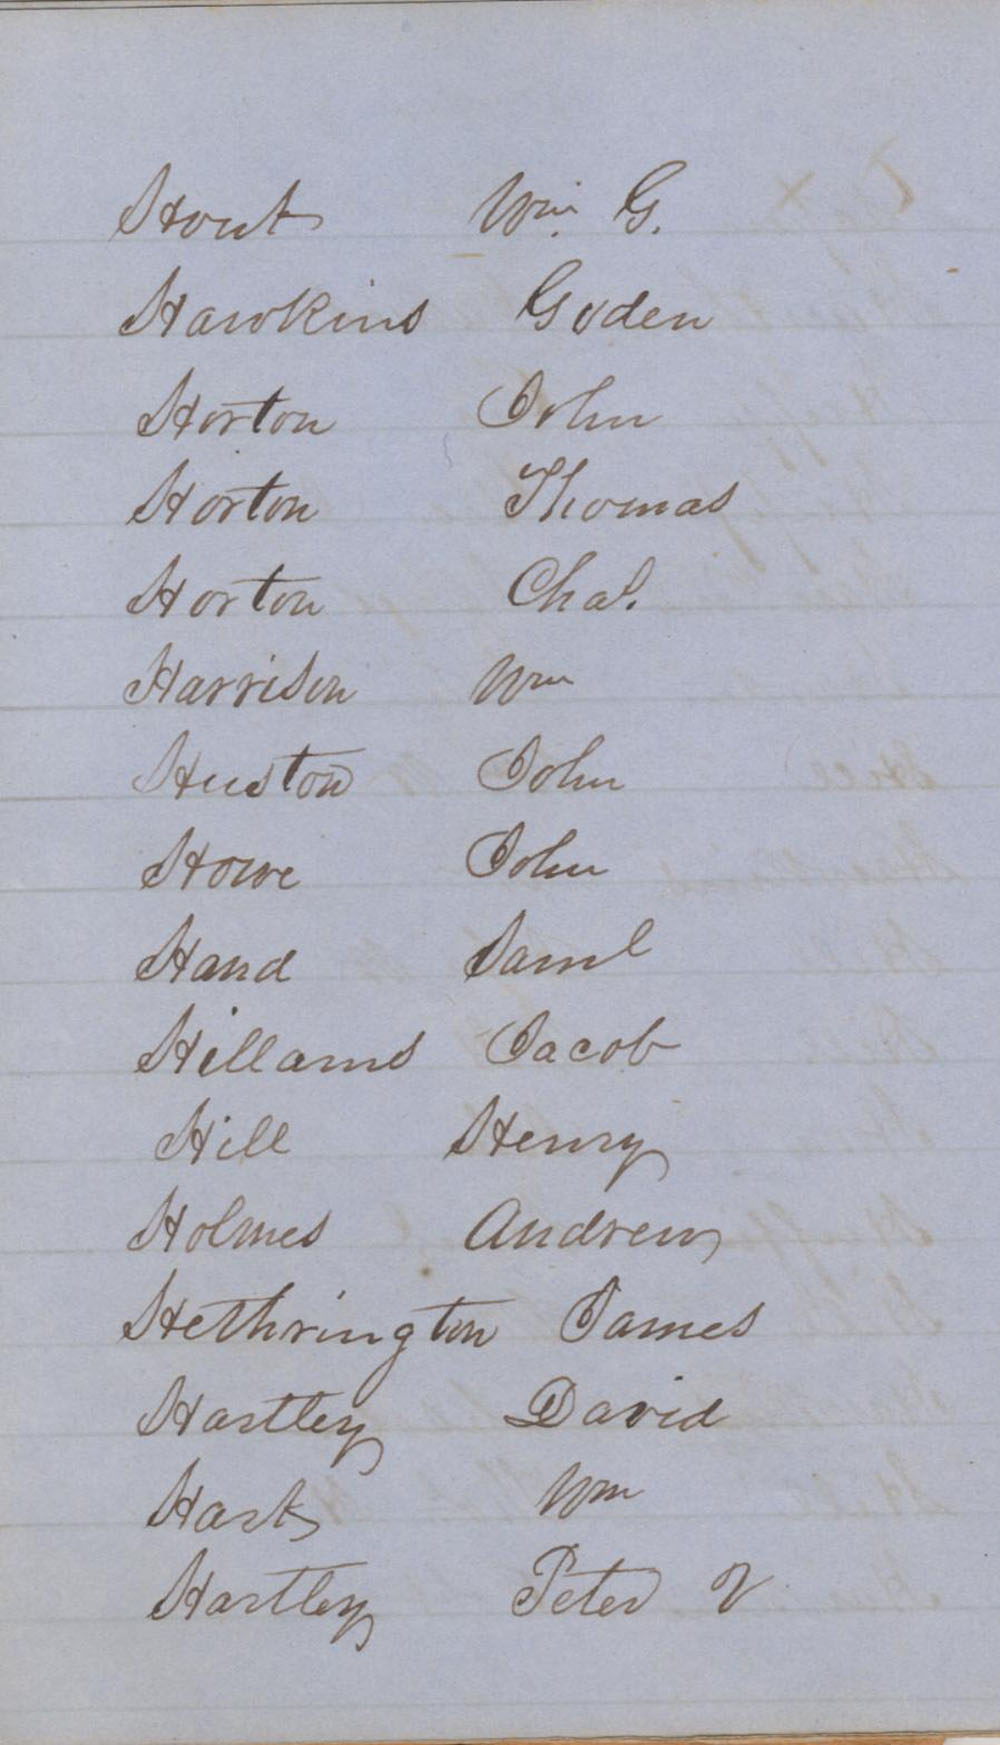 Hout Wm. G.
Hawkins Goden
Horton John
Horton Thomas
Horton Chas.
Harrison Wm
Huston John
Howe John
Hand Saml
Hillams Jacob
Hill Henry
Holmes Andrew
Hethrington James
Hartley David
Hart Wm
Hartley Peter V